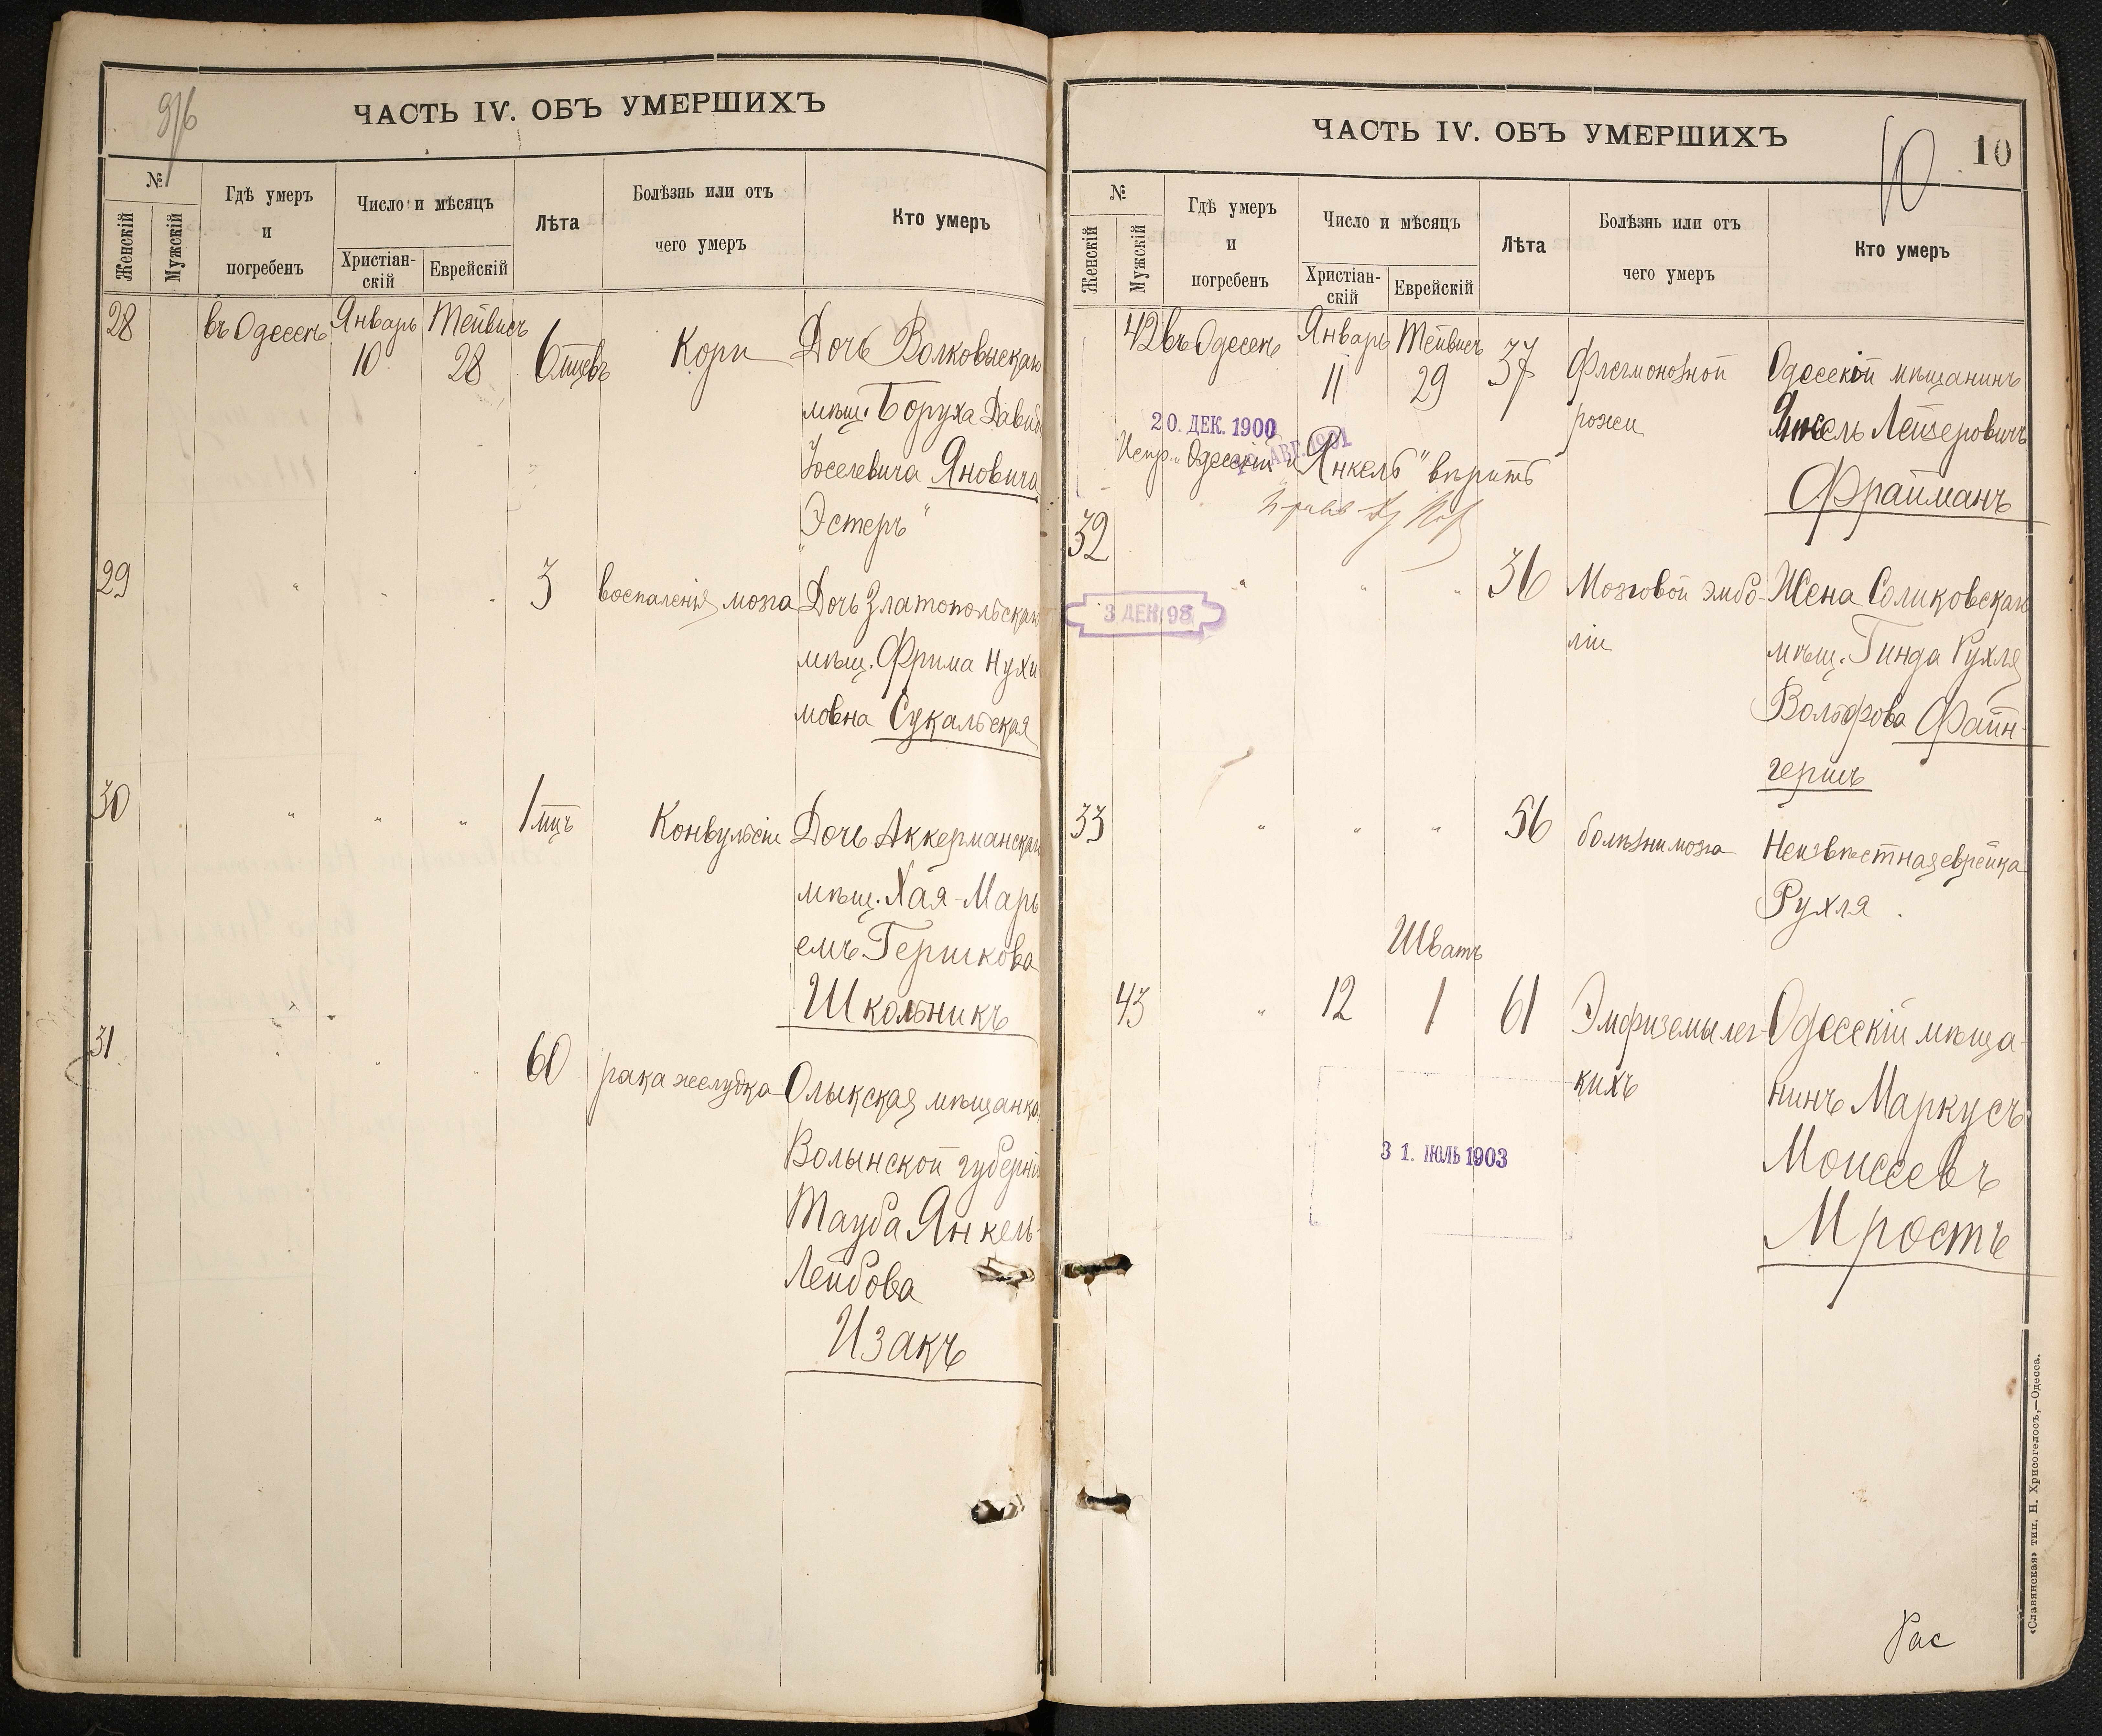 9/б
ЧАСТЬ IV. ОБЪ УМЕРШИХЪ
№
Женскій
Мужскій
Гдѣ умеръ
и
погребенъ
Число и мѣсяцъ
Христіан-
скій
Еврейскій
Лѣта
Болѣзнь или отъ
чего умеръ
Кто умеръ
28 въ Одессѣ Январь 10 Тейвисъ 28 6 мцевъ Кори Дочь Волковыскаго
мѣщ. Боруха Давид
Іоселевича Яновича
Эстеръ"
29 " " " 3 воспаленія мозга Дочь Златопольскаго
мѣщ. Фрима Нухи-
мовна Сукальская
30 " " " 1 мцъ Конвульсіи Дочь Аккерманскаго
мѣщ. Хая-Марь
емъ Гершкова
Школьникъ
31 " " " 60 рака желудка Олыкская мѣщанка
Волынской губерніи
Тауба Янкель-
Лейбова
Изакъ
ЧАСТЬ IV. ОБЪ УМЕРШИХЪ
10
10
№
Женскій
Мужскій
Гдѣ умеръ
и
погребенъ
Число и мѣсяцъ
Христіан-
скій
Еврейскій
Лѣта
Болѣзнь или отъ
чего умеръ
Кто умеръ
42 въ Одессѣ Январь 11 Тейвисъ 29 37 Флегмонозной Одесскій мѣщанинъ
рожи Янкель Лейзеровичъ
Фрайманъ
20. ДЕК. 1900
АВГ. 1901
Испр. "Одесскій и Янкель" вѣрить
32 " " " 36 Мозговой эмбо- Жена Соликовскаго
ліи мѣщ. Гинда Рухля
Вольфова Файн-
гершъ
3 ДЕК. 98
33 " " " 56 болѣзни мозга Неизвѣстная еврейка
Рухля.
Шватъ
43 " 12 1 61 Эмфиземы лег- Одесскій мѣща-
кихъ нинъ Маркусъ
Моисеевъ
Мростъ
31. ІЮЛЬ 1903
Рас
«Славянская» тип. Н. Хрисогелосъ,—Одесса.